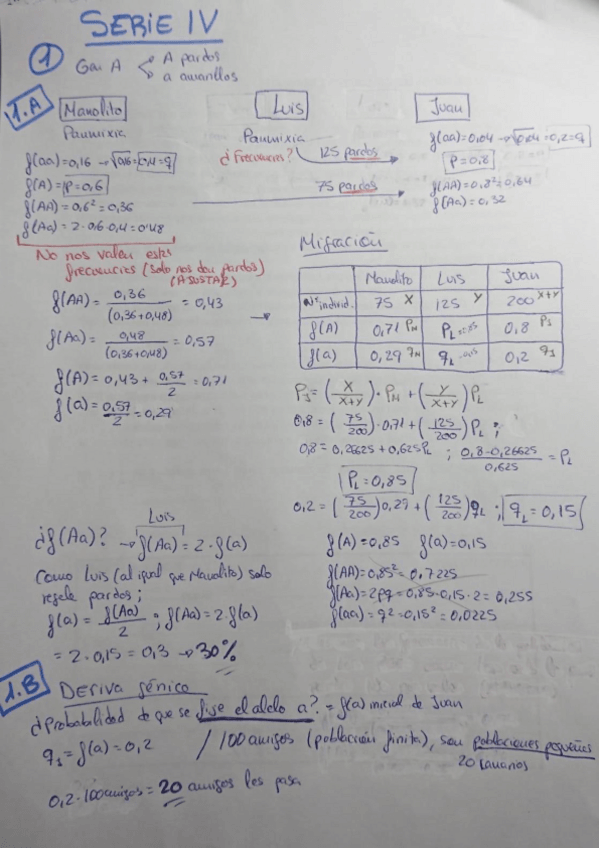 SERIE IV
① Gen A < A pardos
a amarillos
1.A
Manolito
Panmixia
f(aa)=0,16 → √0,16=0,4=q
f(A)=p=0,6
f(AA)=0,6²=0,36
f(Aa)=2·0,6·0,4=0,48
No nos valen estas
frecuencias (solo nos dan pardos)
(AJUSTAR)
f(AA)= 0,36/(0,36+0,48) = 0,43
f(Aa)= 0,48/(0,36+0,48) = 0,57
f(A)=0,43+ 0,57/2 =0,71
f(a)= 0,57/2 =0,29
Luis
Panmixia
¿Frecuencias?
125 pardos
75 pardos
Juan
f(aa)=0,04 → √0,04=0,2=q
p=0,8
f(AA)=0,8²=0,64
f(Aa)=0,32
Migración
Manolito Luis Juan
Nº individ. 75 X 125 Y 200 X+Y
f(A) 0,71 PM PL=0,85 0,8 PJ
f(a) 0,29 qM qL=0,15 0,2 qJ
PJ=(X/X+Y)·PM+(Y/X+Y)PL
0,8=(75/200)·0,71+(125/200)PL ;
0,8=0,26625+0,625PL ; 0,8-0,26625/0,625 =PL
PL=0,85
0,2=(75/200)0,29+(125/200)qL ; qL=0,15
f(A)=0,85 f(a)=0,15
f(AA)=0,85²=0,7225
f(Aa)=2pq=0,85·0,15·2=0,255
f(aa)=q²=0,15²=0,0225
Luis
¿f(Aa)? → f(Aa)=2·f(a)
Como Luis (al igual que Manolito) solo
regala pardos;
f(a)= f(Aa)/2 ; f(Aa)=2·f(a)
=2·0,15=0,3 → 30%
1.B
Deriva génica
¿Probabilidad de que se fije el alelo a? = f(a) inicial de Juan
qJ=f(a)=0,2 / 100 amigos (población finita), son poblaciones pequeñas
20 canarios
0,2·100 amigos=20 amigos les pasa